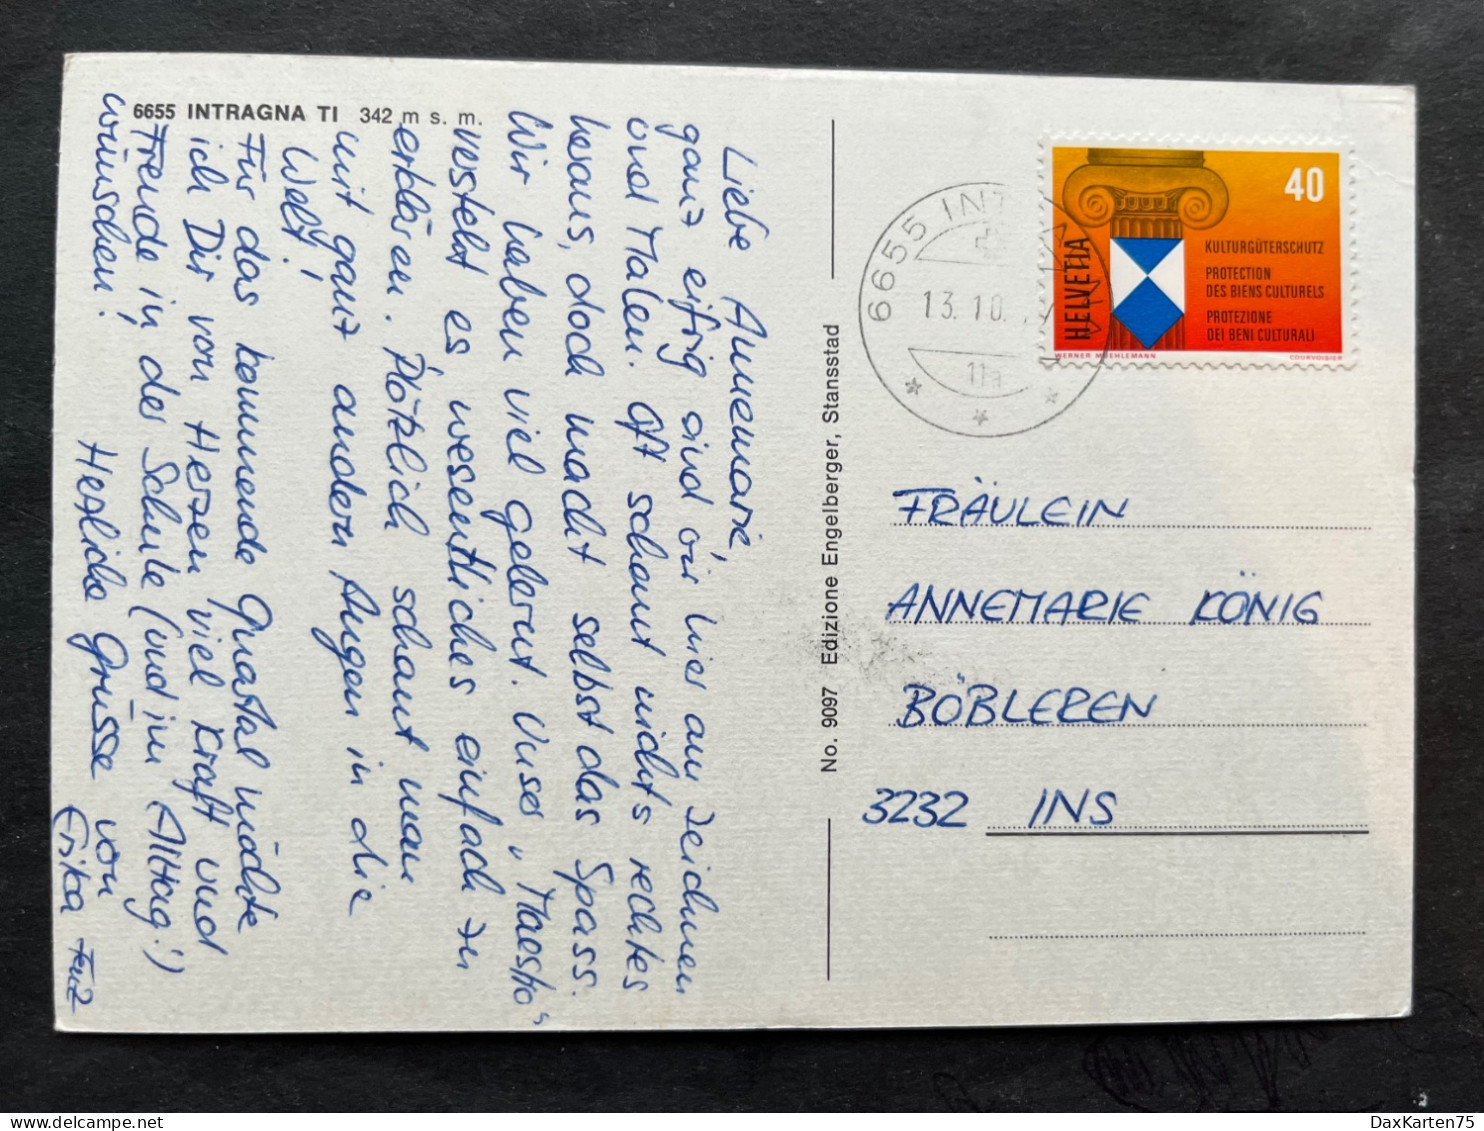 6655 INTRAGNA TI 342 m s. m.
Liebe Annemarie,
ganz eifrig sind wir hier am Zeichnen
und Malen. Oft schaut nichts rechtes
heraus, doch macht selbst das Spass.
Wir haben viel gelernt. Unser „Maestro“
versteht es, wesentliches einfach zu
erklären. Plötzlich schaut man
mit ganz andern Augen in die
Welt!
Für das kommende Quartal möchte
ich Dir von Herzen viel Kraft und
Freude in der Schule (und im Alltag!)
wünschen!
Herzliche Grüsse von
Erika
No. 9097 Edizione Engelberger, Stansstad
6655 INTRAGNA
13.10.
11a
40
HELVETIA
KULTURGÜTERSCHUTZ
PROTECTION
DES BIENS CULTURELS
PROTEZIONE
DEI BENI CULTURALI
WERNER MUEHLEMANN
COURVOISIER
FRÄULEIN
ANNEMARIE KÖNIG
BÖBLEREN
3232 INS
DaxKarten75